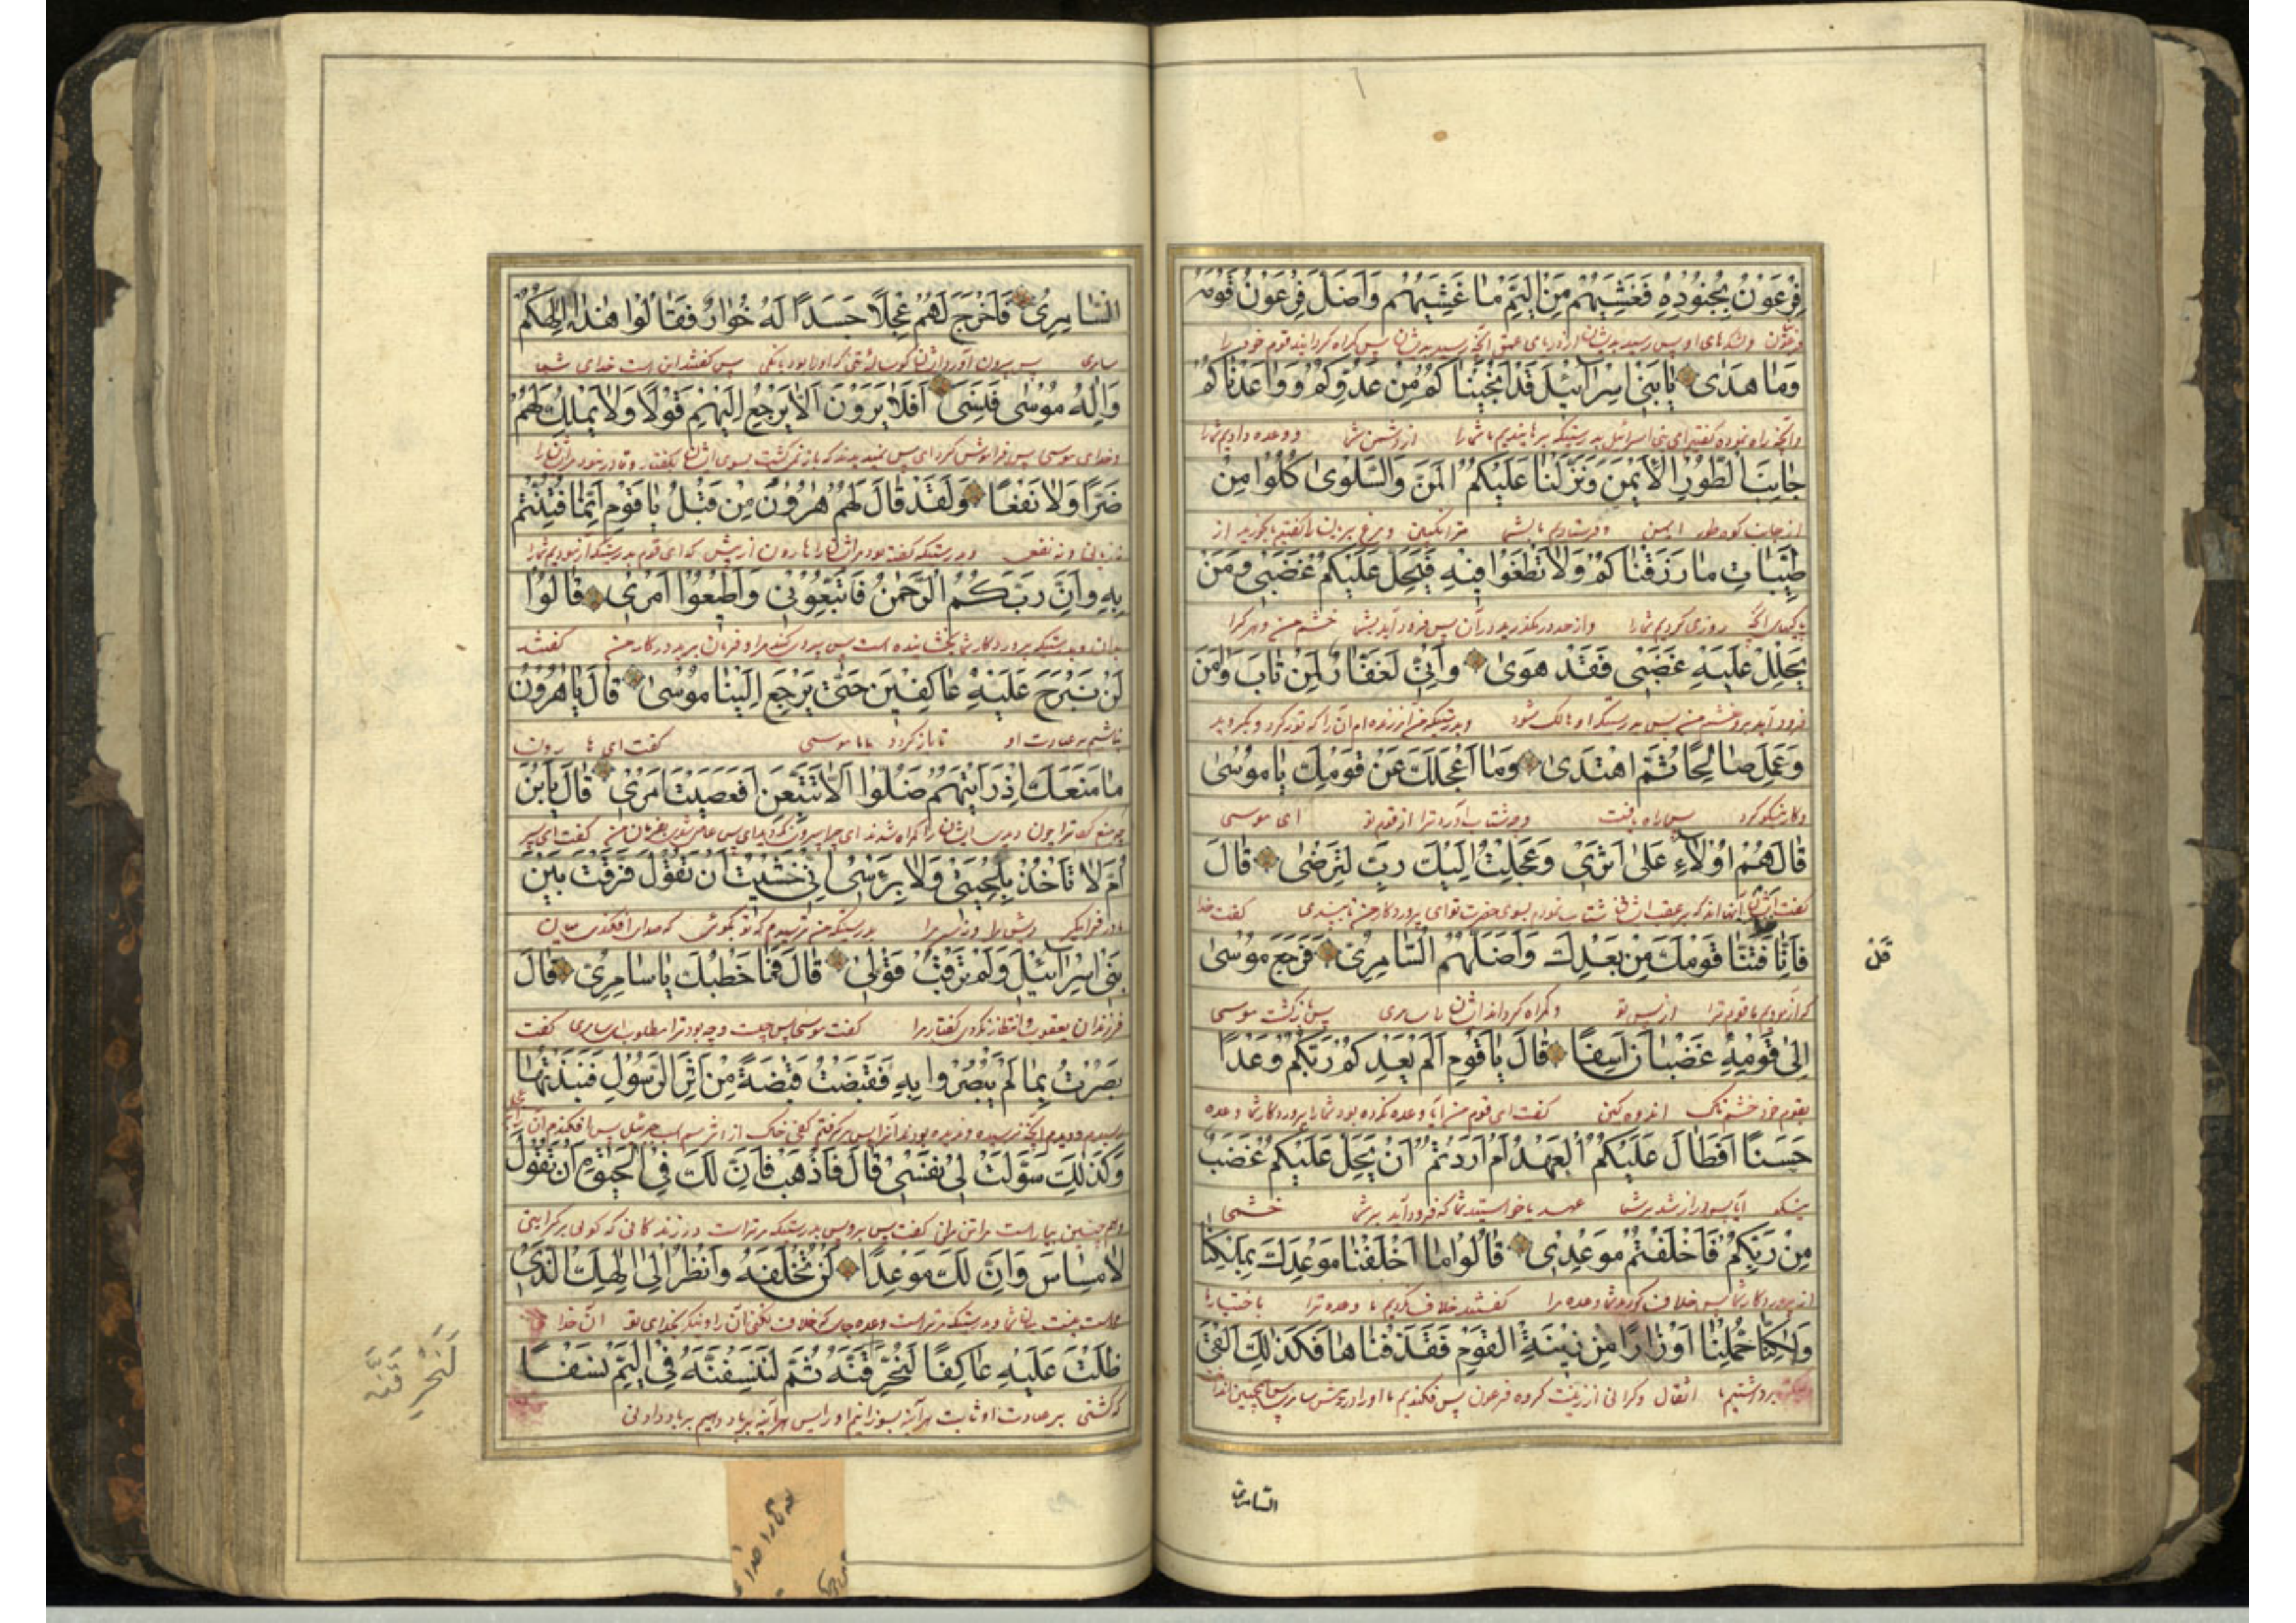 فِرْعَوْنُ بِجُنُودِهِ فَغَشِيَهُمْ مِنَ الْيَمِّ مَا غَشِيَهُمْ وَاَضَلَّ فِرْعَوْنُ قَوْمَهُ
فرعون ولشکرهای او پس رسید بدیشان از دریای عمیق آنچه رسید بدیشان پس گمراه گردانید قوم خود را
وَمَا هَدٰى يَا بَنِي اِسْرَائِيلَ قَدْ اَنْجَيْنَاكُمْ مِنْ عَدُوِّكُمْ وَوَاعَدْنَاكُمْ
وآنچه راه ننمود گفتیم ای بنی اسرائیل بدرستیکه برهانیدیم ما شما را از دشمن شما و وعده دادیم شما را
جَانِبَ الطُّورِ الْاَيْمَنَ وَنَزَّلْنَا عَلَيْكُمُ الْمَنَّ وَالسَّلْوٰى كُلُوا مِنْ
از جانب کوه طور ایمن وفرستادیم بشما ترانگبین ومرغ بریان را گفتیم بخورید از
طَيِّبَاتِ مَا رَزَقْنَاكُمْ وَلَا تَطْغَوْا فِيهِ فَيَحِلَّ عَلَيْكُمْ غَضَبِي وَمَنْ
روزی کردیم شما را واز حد در مگذرید در آن پس فرود آید بشما خشم من وهر کرا
يَحْلِلْ عَلَيْهِ غَضَبِي فَقَدْ هَوٰى وَاِنِّي لَغَفَّارٌ لِمَنْ تَابَ وَاٰمَنَ
فرود آید برو خشم من پس بدرستیکه او هالک شود وبدرستیکه من آمرزنده ام آن را که توبه کرد وبگروید
وَعَمِلَ صَالِحًا ثُمَّ اهْتَدٰى وَمَا اَعْجَلَكَ عَنْ قَوْمِكَ يَا مُوسٰى
وکار نیکو کرد پس راه یافت وچه شتاب آورد ترا از قوم تو ای موسی
قَالَ هُمْ اُولَاءِ عَلٰى اَثَرِي وَعَجِلْتُ اِلَيْكَ رَبِّ لِتَرْضٰى قَالَ
گفت شتاب نمودم بسوی حضرت تو ای پروردگار من تا بپسندی گفت خدا
فَاِنَّا قَدْ فَتَنَّا قَوْمَكَ مِنْ بَعْدِكَ وَاَضَلَّهُمُ السَّامِرِيُّ فَرَجَعَ مُوسٰى
که آزمودیم ما قوم ترا از پس تو وگمراه کرد ایشان را سامری پس بازگشت موسی
قَدْ
اِلٰى قَوْمِهِ غَضْبَانَ اَسِفًا قَالَ يَا قَوْمِ اَلَمْ يَعِدْكُمْ رَبُّكُمْ وَعْدًا
بقوم خود خشم ناک اندوه گین گفت ای قوم من آیا وعده نکرده بود شما را پروردگار شما وعده
حَسَنًا اَفَطَالَ عَلَيْكُمُ الْعَهْدُ اَمْ اَرَدْتُمْ اَنْ يَحِلَّ عَلَيْكُمْ غَضَبٌ
نیکو آیا پس دراز شد برشما عهد یا خواستید شما که فرود آید بر شما خشمی
مِنْ رَبِّكُمْ فَاَخْلَفْتُمْ مَوْعِدِي قَالُوا مَا اَخْلَفْنَا مَوْعِدَكَ بِمَلْكِنَا
از پروردگار شما پس خلاف کردید شما وعده مرا گفتند خلاف نکردیم ما وعده ترا باختیار ما
وَلٰكِنَّا حُمِّلْنَا اَوْزَارًا مِنْ زِينَةِ الْقَوْمِ فَقَذَفْنَاهَا فَكَذٰلِكَ اَلْقَى
برداشتیم اثقال وگرانی از زینت گروه فرعون پس فکندیم ما او را در آتش
السامری
السَّامِرِيُّ فَاَخْرَجَ لَهُمْ عِجْلًا جَسَدًا لَهُ خُوَارٌ فَقَالُوا هٰذَا اِلٰهُكُمْ
سامری پس بیرون آورد از برای ایشان گوساله که او را بود بانگی پس گفتند این است خدای شما
وَاِلٰهُ مُوسٰى فَنَسِيَ اَفَلَا يَرَوْنَ اَلَّا يَرْجِعُ اِلَيْهِمْ قَوْلًا وَلَا يَمْلِكُ لَهُمْ
وخدای موسی پس فراموش کرد آیا پس نمیدیدند که باز نمیگشت بسوی ایشان بگفتار وقادر نبود مر ایشان را
ضَرًّا وَلَا نَفْعًا وَلَقَدْ قَالَ لَهُمْ هٰرُونُ مِنْ قَبْلُ يَا قَوْمِ اِنَّمَا فُتِنْتُمْ
زیانی ونه نفعی وبدرستیکه گفته بود مر ایشان را هارون از پیش که ای قوم بدرستیکه آزمودیم شما را
بِهِ وَاِنَّ رَبَّكُمُ الرَّحْمٰنُ فَاتَّبِعُونِي وَاَطِيعُوا اَمْرِي قَالُوا
بدان وبدرستیکه پروردگار شما بخشاینده است پس پیروی کنید مرا وفرمان برید در کار من گفتند
لَنْ نَبْرَحَ عَلَيْهِ عَاكِفِينَ حَتّٰى يَرْجِعَ اِلَيْنَا مُوسٰى قَالَ يَا هٰرُونُ
باشیم بر عبادت او تا باز گردد بما موسی گفت ای هارون
مَا مَنَعَكَ اِذْ رَاَيْتَهُمْ ضَلُّوا اَلَّا تَتَّبِعَنِ اَفَعَصَيْتَ اَمْرِي قَالَ يَا ابْنَ
چه منع کرد ترا چون دیدی ایشان را گمراه شدند گفت ای پسر
اُمَّ لَا تَاْخُذْ بِلِحْيَتِي وَلَا بِرَاْسِي اِنِّي خَشِيتُ اَنْ تَقُولَ فَرَّقْتَ بَيْنَ
مادر فرا مگیر ریش مرا ونه سر مرا بدرستیکه من ترسیدم که تو بگوئی که جدائی افکندی میان
بَنِي اِسْرَائِيلَ وَلَمْ تَرْقُبْ قَوْلِي قَالَ فَمَا خَطْبُكَ يَا سَامِرِيُّ قَالَ
فرزندان یعقوب وانتظار نکردی گفتار مرا گفت موسی پس چیست وچه بود ترا مطلوب ای سامری گفت
بَصُرْتُ بِمَا لَمْ يَبْصُرُوا بِهِ فَقَبَضْتُ قَبْضَةً مِنْ اَثَرِ الرَّسُولِ فَنَبَذْتُهَا
ودیدم آنچه ندیده بودند آنرا پس برگرفتم کفی خاک از اثر سم اسب جبرئیل پس افکندم آن
وَكَذٰلِكَ سَوَّلَتْ لِي نَفْسِي قَالَ فَاذْهَبْ فَاِنَّ لَكَ فِي الْحَيٰوةِ اَنْ تَقُولَ
وهمچنین بیاراست مرا تن من گفت پس برو پس بدرستیکه مر تراست در زندگانی که گوئی هر کرا بینی
لَا مِسَاسَ وَاِنَّ لَكَ مَوْعِدًا لَنْ تُخْلَفَهُ وَانْظُرْ اِلٰى اِلٰهِكَ الَّذِي
وبدرستیکه مر تراست وعده خلاف نکنی آن را وبنگر بخدای تو آن خدا
ظَلْتَ عَلَيْهِ عَاكِفًا لَنُحَرِّقَنَّهُ ثُمَّ لَنَنْسِفَنَّهُ فِي الْيَمِّ نَسْفًا
که گشتی بر عبادت او ثابت هرآینه بسوزانیم او را پس هرآینه برباد دهیم برباد دادنی
لَنُحَرِّقَنَّهُ